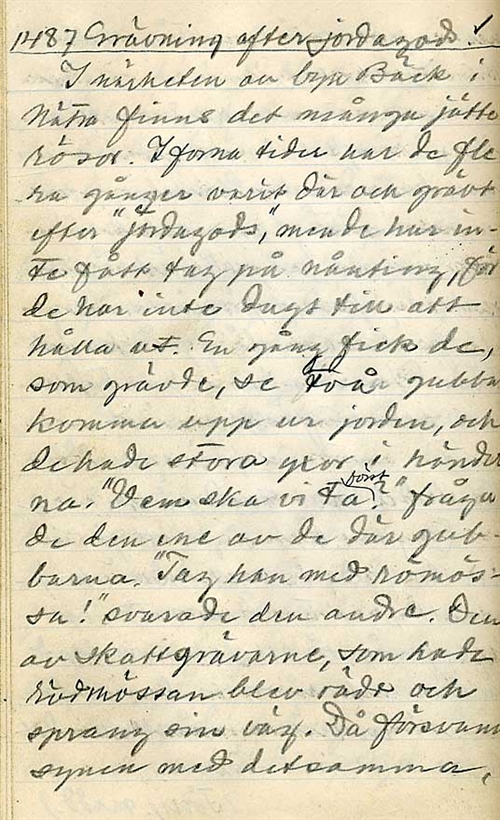 1487 Grävning efter jordagods.
I närheten av byn Bäck i
Nätra finns det många jätte
rösor. I forna tider har de fle
ra gånger varit där och grävt
efter "jordagods," men de har in-
te fått tag på nånting, för
de har inte dugt till att
hålla ut. En gång fick de,
som grävde, se två gubba
komma upp ur jorden, och
de hade stora yxor i händer
na. "Vem ska vi ta först?" fråga
de den ene av de där gub-
barna. "Tag han med römös-
sa!" svarade den andre. Den
av skattgrävarne, som hade
rödmössan blev rädd och
sprang sin väg. Då försvann
synen med detsamma.